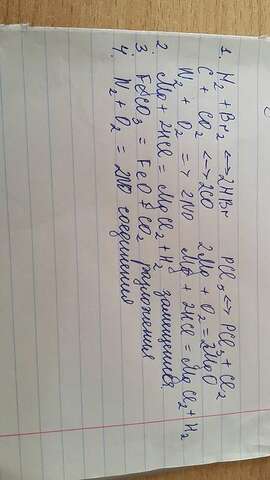 1. H₂ + Br₂ <-> 2HBr PCl₅ <-> PCl₃ + Cl₂
C + CO₂ <-> 2CO 2Mg + O₂ = 2MgO
N₂ + O₂ => 2NO Mg + 2HCl = MgCl₂ + H₂
2. Mg + 2HCl = MgCl₂ + H₂ замещения
3. FeCO₃ = FeO + CO₂ разложения
4. N₂ + O₂ = 2NO соединения